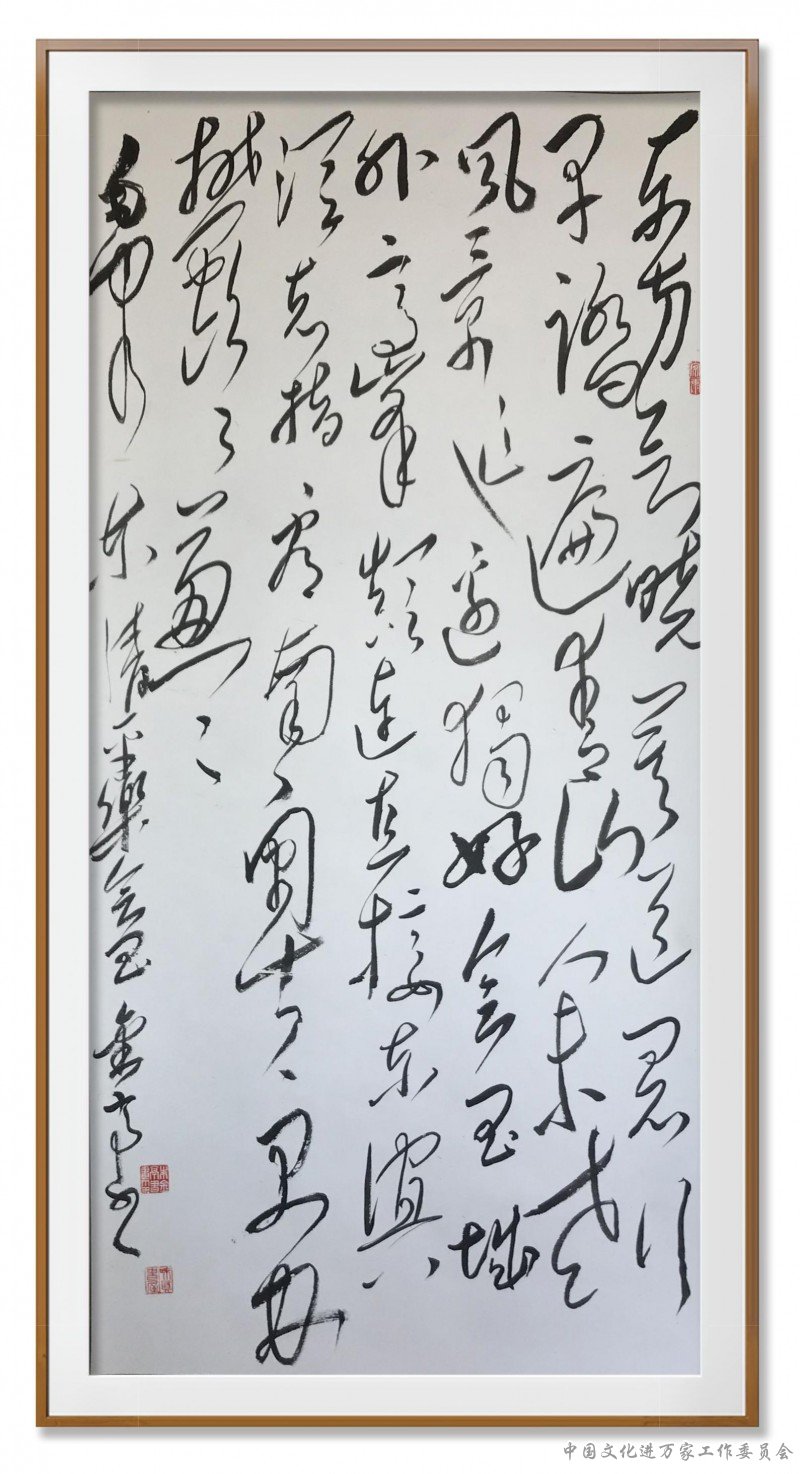 东方欲晓莫道君行
早踏遍青山人未老
风景这边独好会昌城
外高峰颠连直接东溟
战士指看南粤更加
鬱々葱々
毛泽东清平樂会昌 书
中国文化进万家工作委员会